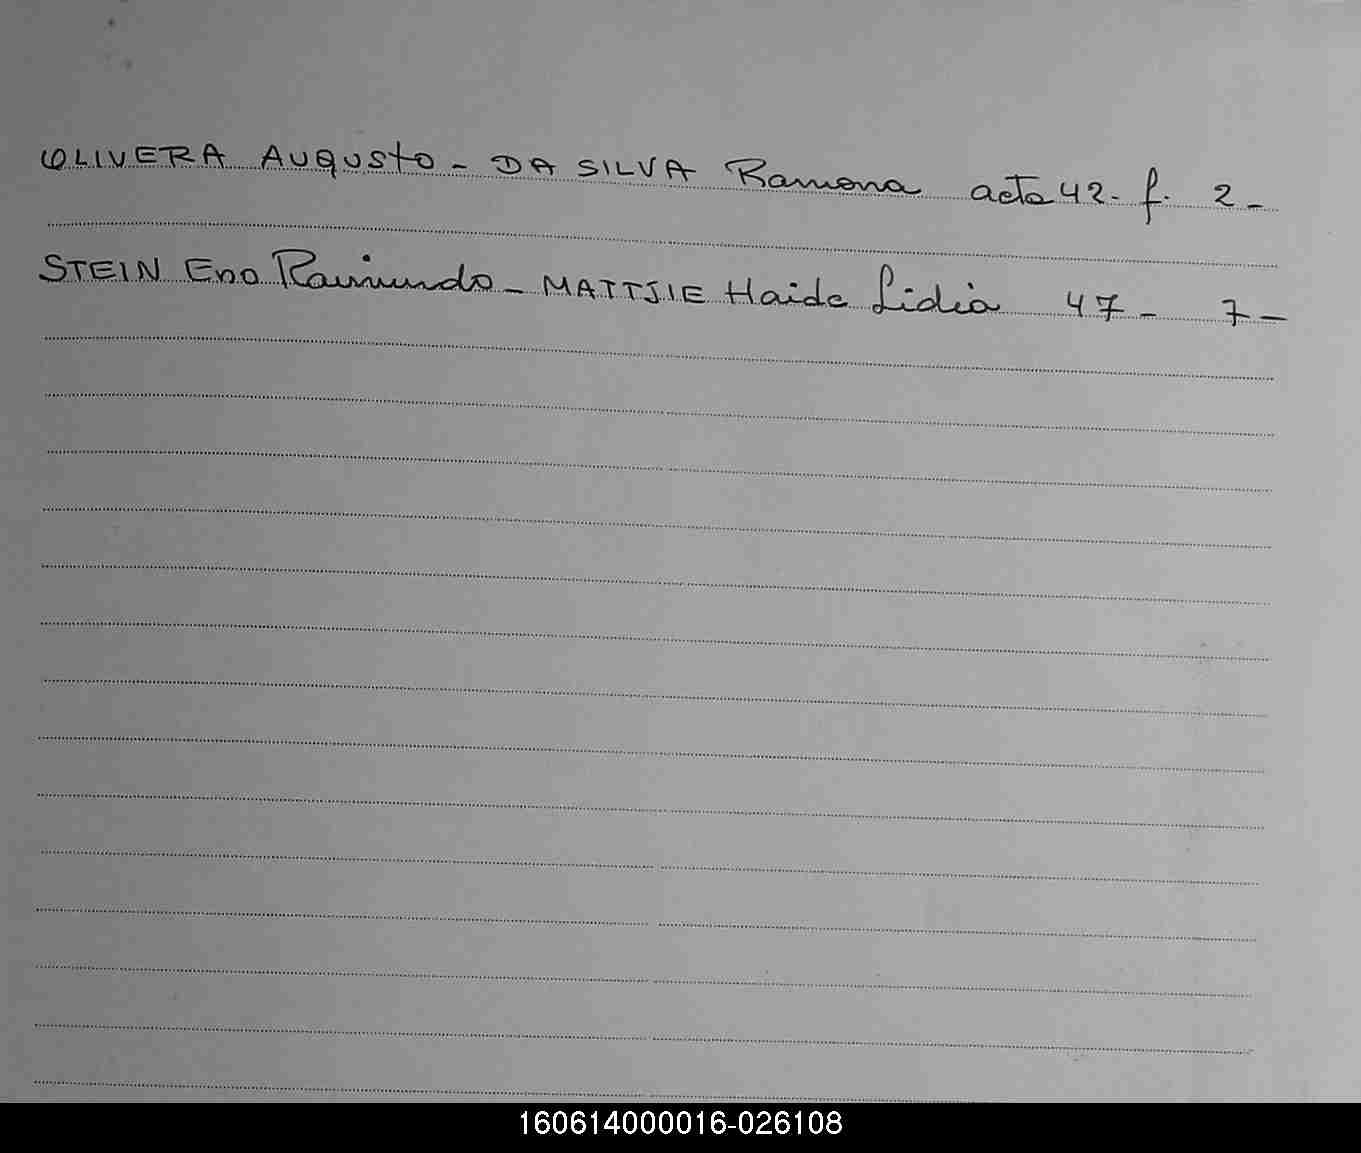 OLIVERA Augusto - DA SILVA Ramona acta 42 - f. 2 -
STEIN Eno Raimundo - MATTJIE Haide Lidia 47 - 7 -
160614000016-026108